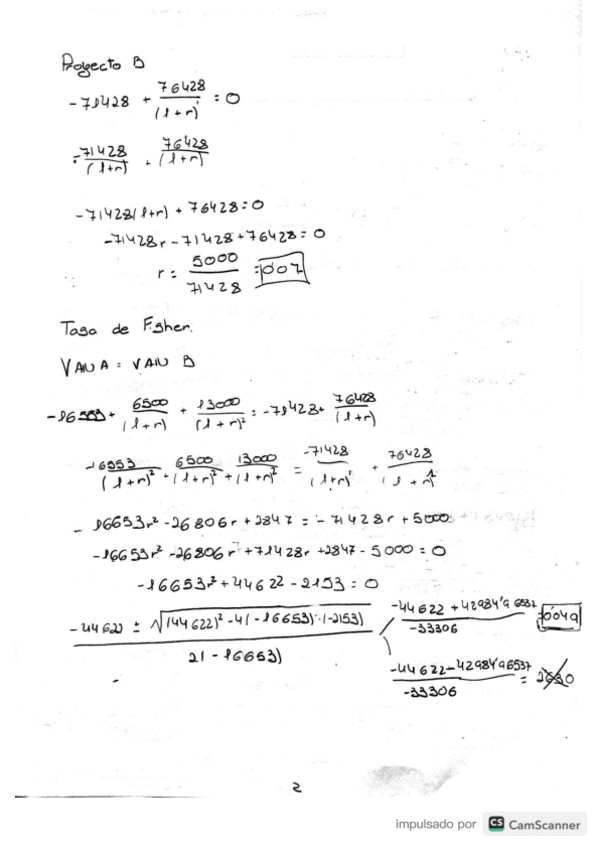 Proyecto B
-71428 + 76428/(1+r)' = 0
-71428/(1+r) + 76428/(1+r)
-71428(1+r) + 76428 = 0
-71428r - 71428 + 76428 = 0
r = 5000/71428 = 0'07
Tasa de Fisher.
VAN A = VAN B
+ 6500/(1+r) + 13000/(1+r)² = -71428 + 76428/(1+r)
-16553/(1+r)² + 6500/(1+r)² + 13000/(1+r)² = -71428/(1+r)' + 76428/(1+r)²
- 16653r² - 26806r + 2847 = - 71428r + 5000
-16653r² - 26806r + 71428r + 2847 - 5000 = 0
-16653r² + 44622 - 2153 = 0
-44622 ± √(44622)² - 4(-16653)·(-2153) / 2(-16653)
-44622 + 42984'96537 / -33306 = 0'049
-44622 - 42984'96537 / -33306 = 2'630
2
impulsado por CS CamScanner